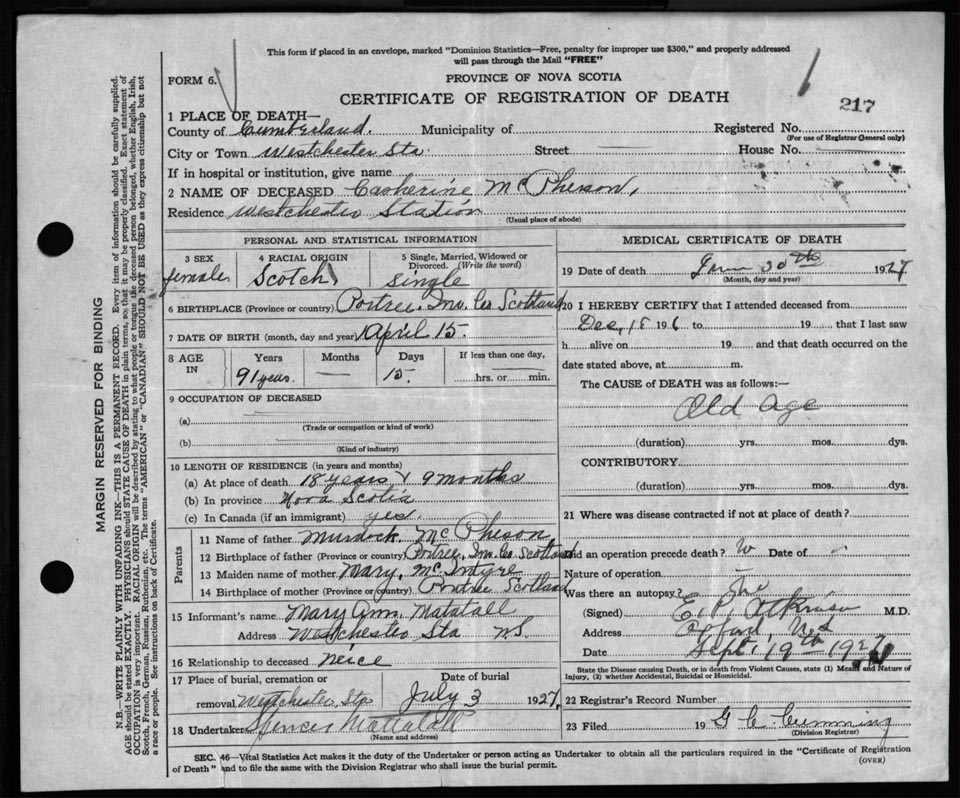 This form if placed in an envelope, marked "Dominion Statistics—Free, penalty for improper use $300," and properly addressed
will pass through the Mail "FREE"
FORM 6.
PROVINCE OF NOVA SCOTIA
CERTIFICATE OF REGISTRATION OF DEATH
217
1 PLACE OF DEATH—
County of Cumberland. Municipality of Registered No.
(For use of Registrar General only)
City or Town Westchester Sta. Street House No.
If in hospital or institution, give name
2 NAME OF DECEASED Catherine McPherson,
Residence Westchester Station
(Usual place of abode)
PERSONAL AND STATISTICAL INFORMATION
3 SEX 4 RACIAL ORIGIN 5 Single, Married, Widowed or Divorced. (Write the word)
female Scotch Single
6 BIRTHPLACE (Province or country) Portree, Inv. Co Scotland
7 DATE OF BIRTH (month, day and year) April 15
8 AGE IN Years Months Days If less than one day,
91 years. — 15 hrs. or min.
9 OCCUPATION OF DECEASED
(a)
(Trade or occupation or kind of work)
(b)
(Kind of industry)
10 LENGTH OF RESIDENCE (in years and months)
(a) At place of death 18 years & 9 months
(b) In province Nova Scotia
(c) In Canada (if an immigrant) yes.
Parents
11 Name of father Murdock McPheson
12 Birthplace of father (Province or country) Portree, Inv. Co Scotland
13 Maiden name of mother Mary, McIntyre
14 Birthplace of mother (Province or country) Portree Scotland
15 Informant's name Mary Ann. Matatall
Address Westchester Sta NS.
16 Relationship to deceased neice
17 Place of burial, cremation or Date of burial
removal Westchester Sta July 3 1927,
18 Undertaker Spencer Mattatall
(Name and address)
MEDICAL CERTIFICATE OF DEATH
19 Date of death June 30th 1927
(Month, day and year)
20 I HEREBY CERTIFY that I attended deceased from
Dec, 18 1926 to 19 that I last saw
h alive on 19 and that death occurred on the
date stated above, at m.
The CAUSE of DEATH was as follows:—
Old Age
(duration) yrs. mos. dys.
CONTRIBUTORY
(duration) yrs. mos. dys.
21 Where was disease contracted if not at place of death?
Did an operation precede death? Date of
Nature of operation
Was there an autopsy?
(Signed) E. P. Atkinson M.D.
Address Oxford, N.S
Date Sept, 19th 1927
State the Disease causing Death, or in death from Violent Causes, state (1) Means and Nature of
Injury, (2) whether Accidental, Suicidal or Homicidal.
22 Registrar's Record Number
23 Filed 19 G C Cumming
(Division Registrar)
SEC. 46—Vital Statistics Act makes it the duty of the Undertaker or person acting as Undertaker to obtain all the particulars required in the "Certificate of Registration
of Death" and to file the same with the Division Registrar who shall issue the burial permit.
(OVER)
MARGIN RESERVED FOR BINDING
N.B.—WRITE PLAINLY WITH UNFADING INK—THIS IS A PERMANENT RECORD. Every item of information should be carefully supplied.
AGE should be stated EXACTLY. PHYSICIANS should STATE CAUSE OF DEATH in plain terms, so that it may be properly classified. Exact statement of
OCCUPATION is very important. RACIAL ORIGIN will be described by stating to what people or tongue the deceased person belonged, whether English, Irish,
Scotch, French, German, Russian, Ruthenian, etc. The terms "AMERICAN" or "CANADIAN" SHOULD NOT BE USED as they express citizenship but not
a race or people. See instructions on back of Certificate.